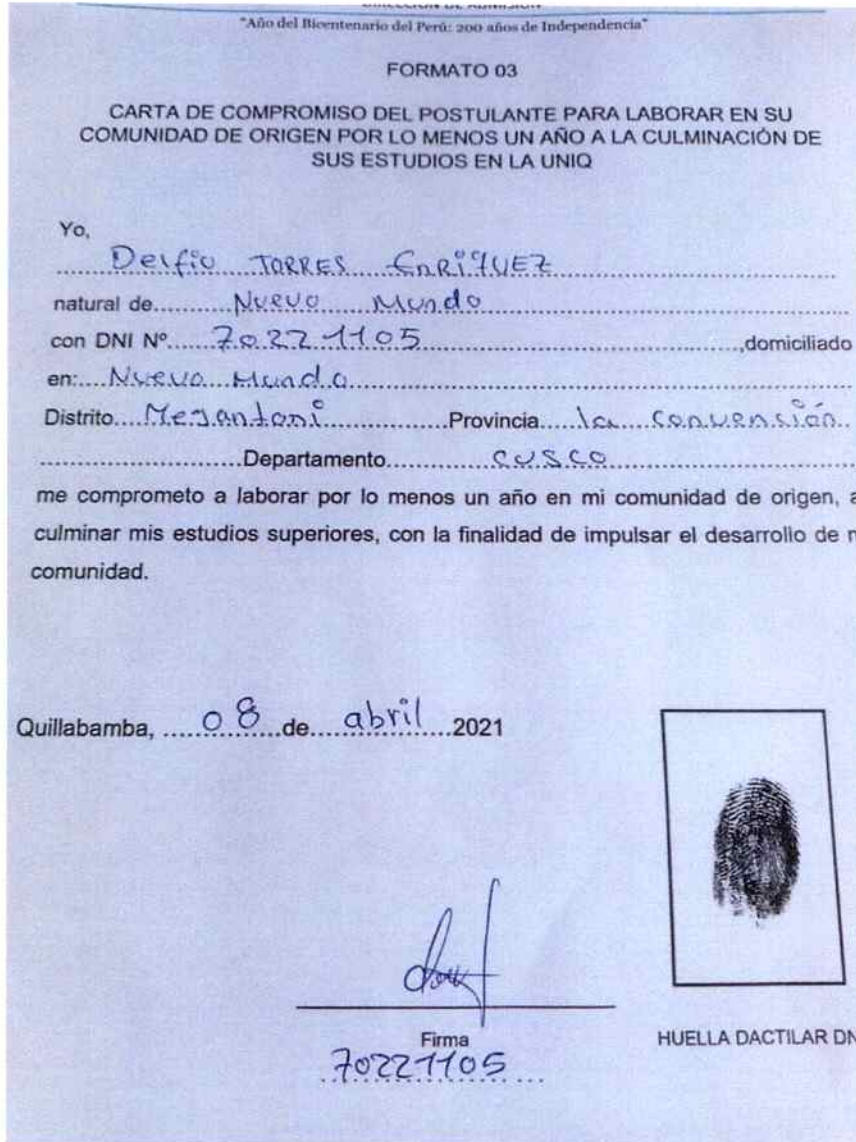 DIRECCIÓN DE ADMISIÓN
"Año del Bicentenario del Perú: 200 años de Independencia"
FORMATO 03
CARTA DE COMPROMISO DEL POSTULANTE PARA LABORAR EN SU
COMUNIDAD DE ORIGEN POR LO MENOS UN AÑO A LA CULMINACIÓN DE
SUS ESTUDIOS EN LA UNIQ
Yo,
Delfio TORRES EnRiQUEZ
natural de.......... Nuevo Mundo
con DNI Nº...... 70221105 ......,domiciliado
en:.... Nuevo Mundo
Distrito.... Megantoni ........Provincia..... la convensión
........Departamento............ CUSCO
me comprometo a laborar por lo menos un año en mi comunidad de origen, a
culminar mis estudios superiores, con la finalidad de impulsar el desarrollo de m
comunidad.
Quillabamba, ..... 08 ....de.... abril ....2021
Firma
70221105
HUELLA DACTILAR DN